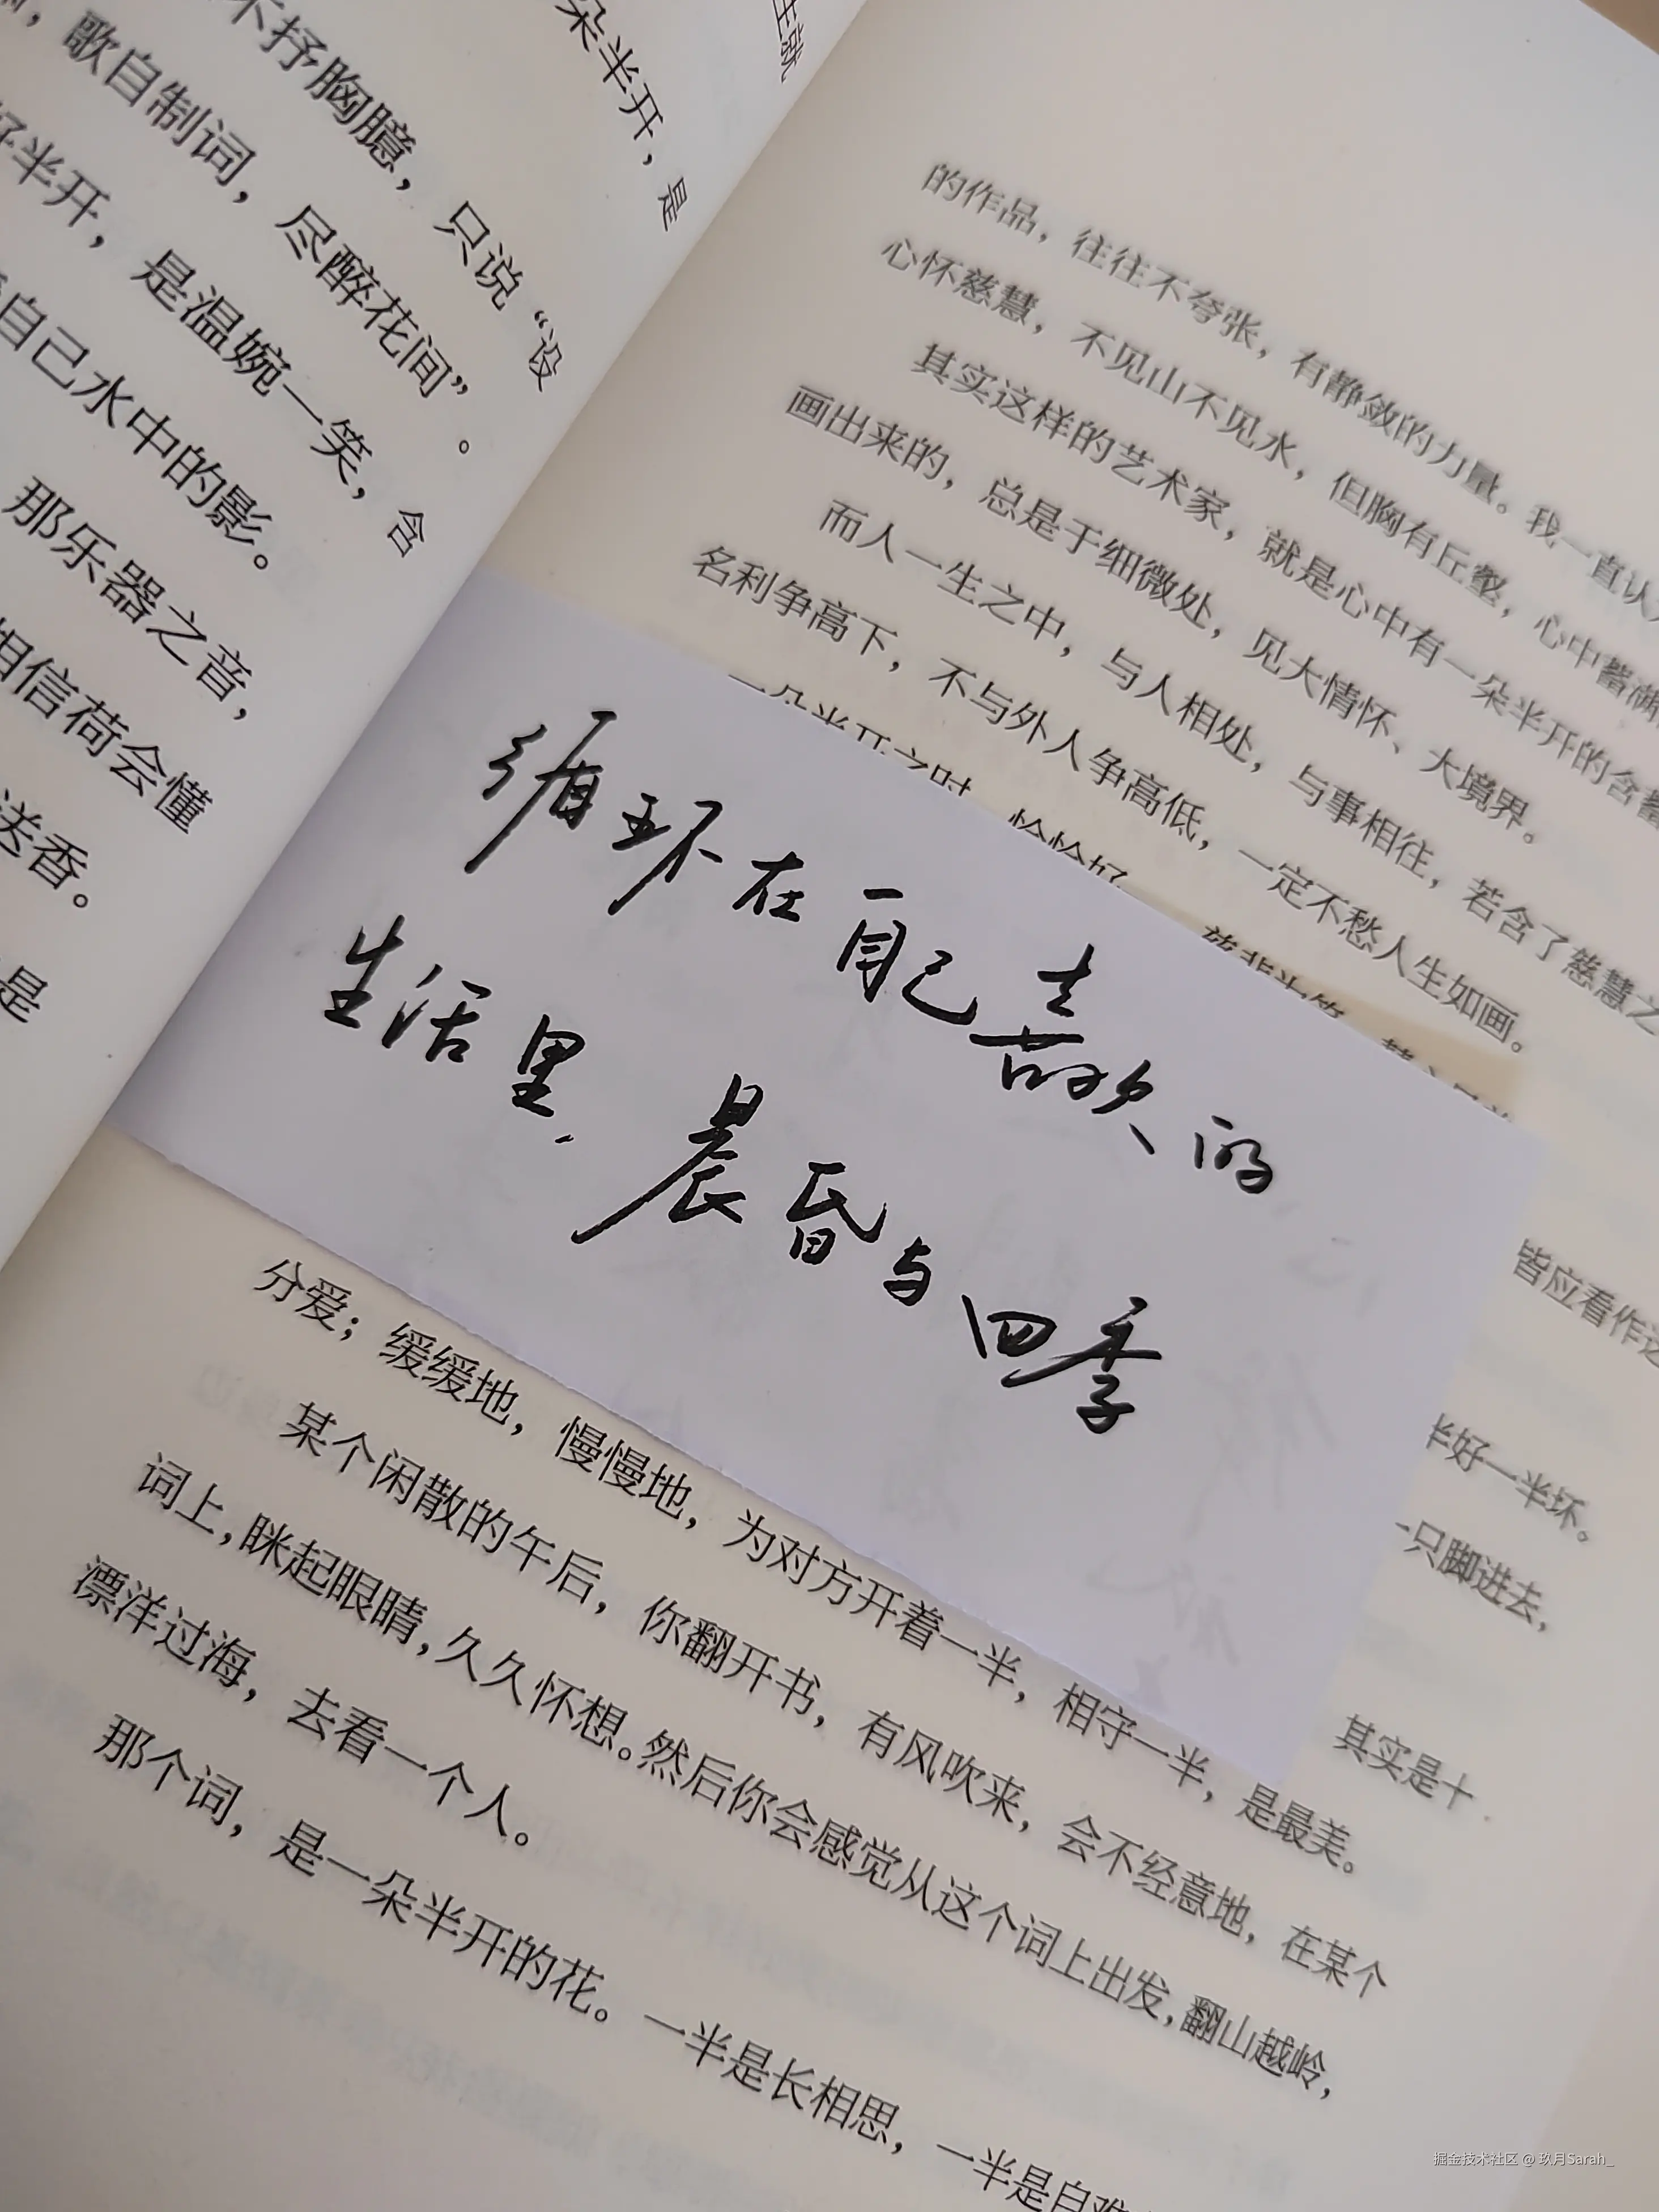 生就
朵半开，是
不抒胸臆，只说“设
歌自制词，尽醉花间”。
好半开，是温婉一笑，含
自己水中的影。
那乐器之音，
相信荷会懂
送香。
是
的作品，往往不夸张，有静敛的力量。我一直认
心怀慈慧，不见山不见水，但胸有丘壑，心中蓄湖
其实这样的艺术家，就是心中有一朵半开的含蓄
画出来的，总是于细微处，见大情怀、大境界。
而人一生之中，与人相处，与事相往，若含了慈慧之
名利争高下，不与外人争高低，一定不愁人生如画。
一朵半开之时，恰恰好
循环在自己喜欢的
生活里，晨昏与四季
皆应看作这
半好一半坏。
一只脚进去，
其实是十
分爱；缓缓地，慢慢地，为对方开着一半，相守一半，是最美。
某个闲散的午后，你翻开书，有风吹来，会不经意地，在某个
词上，眯起眼睛，久久怀想。然后你会感觉从这个词上出发，翻山越岭，
漂洋过海，去看一个人。
那个词，是一朵半开的花。一半是长相思，一半是自难
掘金技术社区 @ 玖月Sarah_